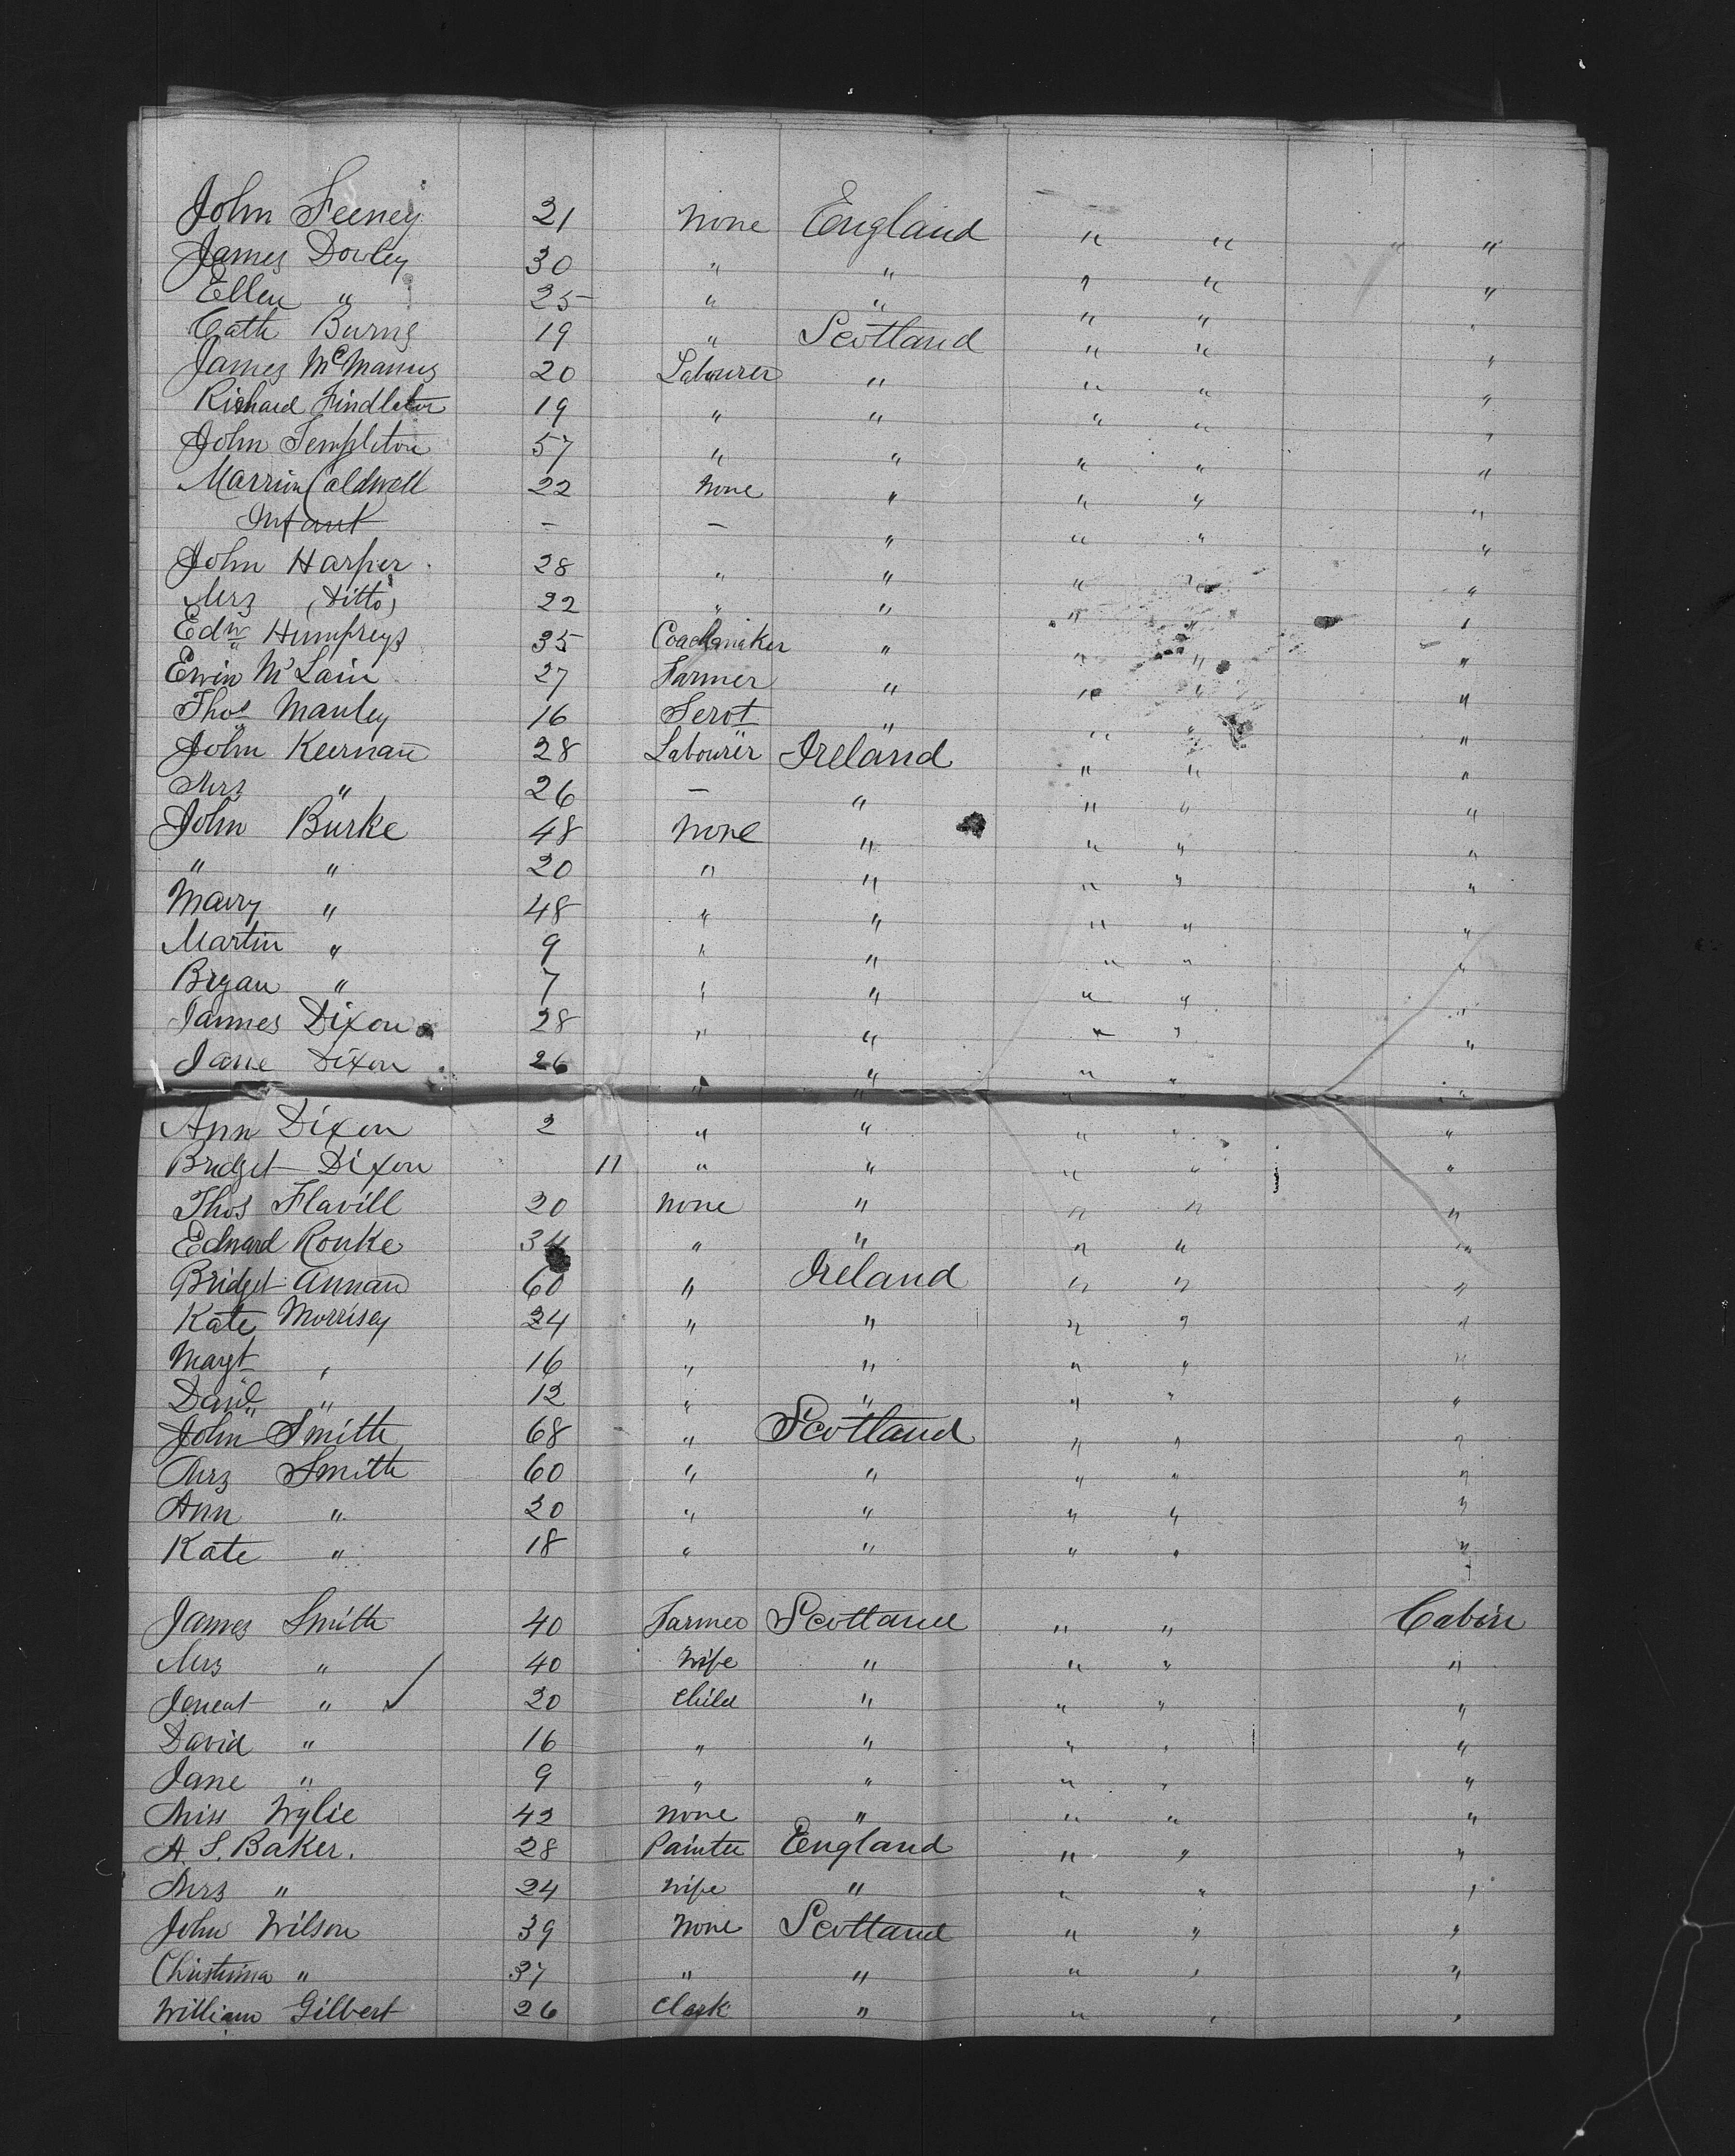 John Feeney 21 None England " " " "
James Dovley 30 " " " " "
Ellen " 25 " " " " "
Cath Burns 19 " Scotland " " "
James McManus 20 Labourer " " " "
Richard Findleter 19 " " " " "
John Templeton 57 " " " " "
Marrion Caldwell 22 None " " " "
Infant — — " " " "
John Harper 28 " " " " "
Mrs (Ditto) 22 " " " " "
Edw Humfreys 35 Coachmaker " " " "
Ewin McLain 27 Farmer " " " "
Thos Manley 16 Servt " " " "
John Keernan 28 Labourer Ireland " " "
Mrs " 26 — " " " "
John Burke 48 None " " " "
" " 20 " " " " "
Mary " 48 " " " " "
Martin " 9 " " " " "
Bryan " 7 " " " " "
James Dixon 28 " " " " "
Jane Dixon 26 " " " " "
Ann Dixon 2 " " " " "
Bridget Dixon 11 " " " " "
Thos Flavill 20 None " " " "
Edward Rouke 34 " " " " "
Bridget Annan 60 " Ireland " " "
Kate Morrisey 24 " " " " "
Margt " 16 " " " " "
David " 12 " " " " "
John Smith 68 " Scotland " " "
Mrs Smith 60 " " " " "
Ann " 20 " " " " "
Kate " 18 " " " " "
James Smith 40 Farmer Scotland " " Cabin
Mrs " 40 Wife " " " "
" 20 Child " " " "
David " 16 " " " " "
Jane " 9 " " " " "
Miss Wylie 42 None " " " "
A. S. Baker. 28 Painter England " " "
Mrs " 24 Wife " " " "
John Wilson 39 None Scotland " " "
Christina " 37 " " " " "
William Gilbert 26 Clerk " " " "